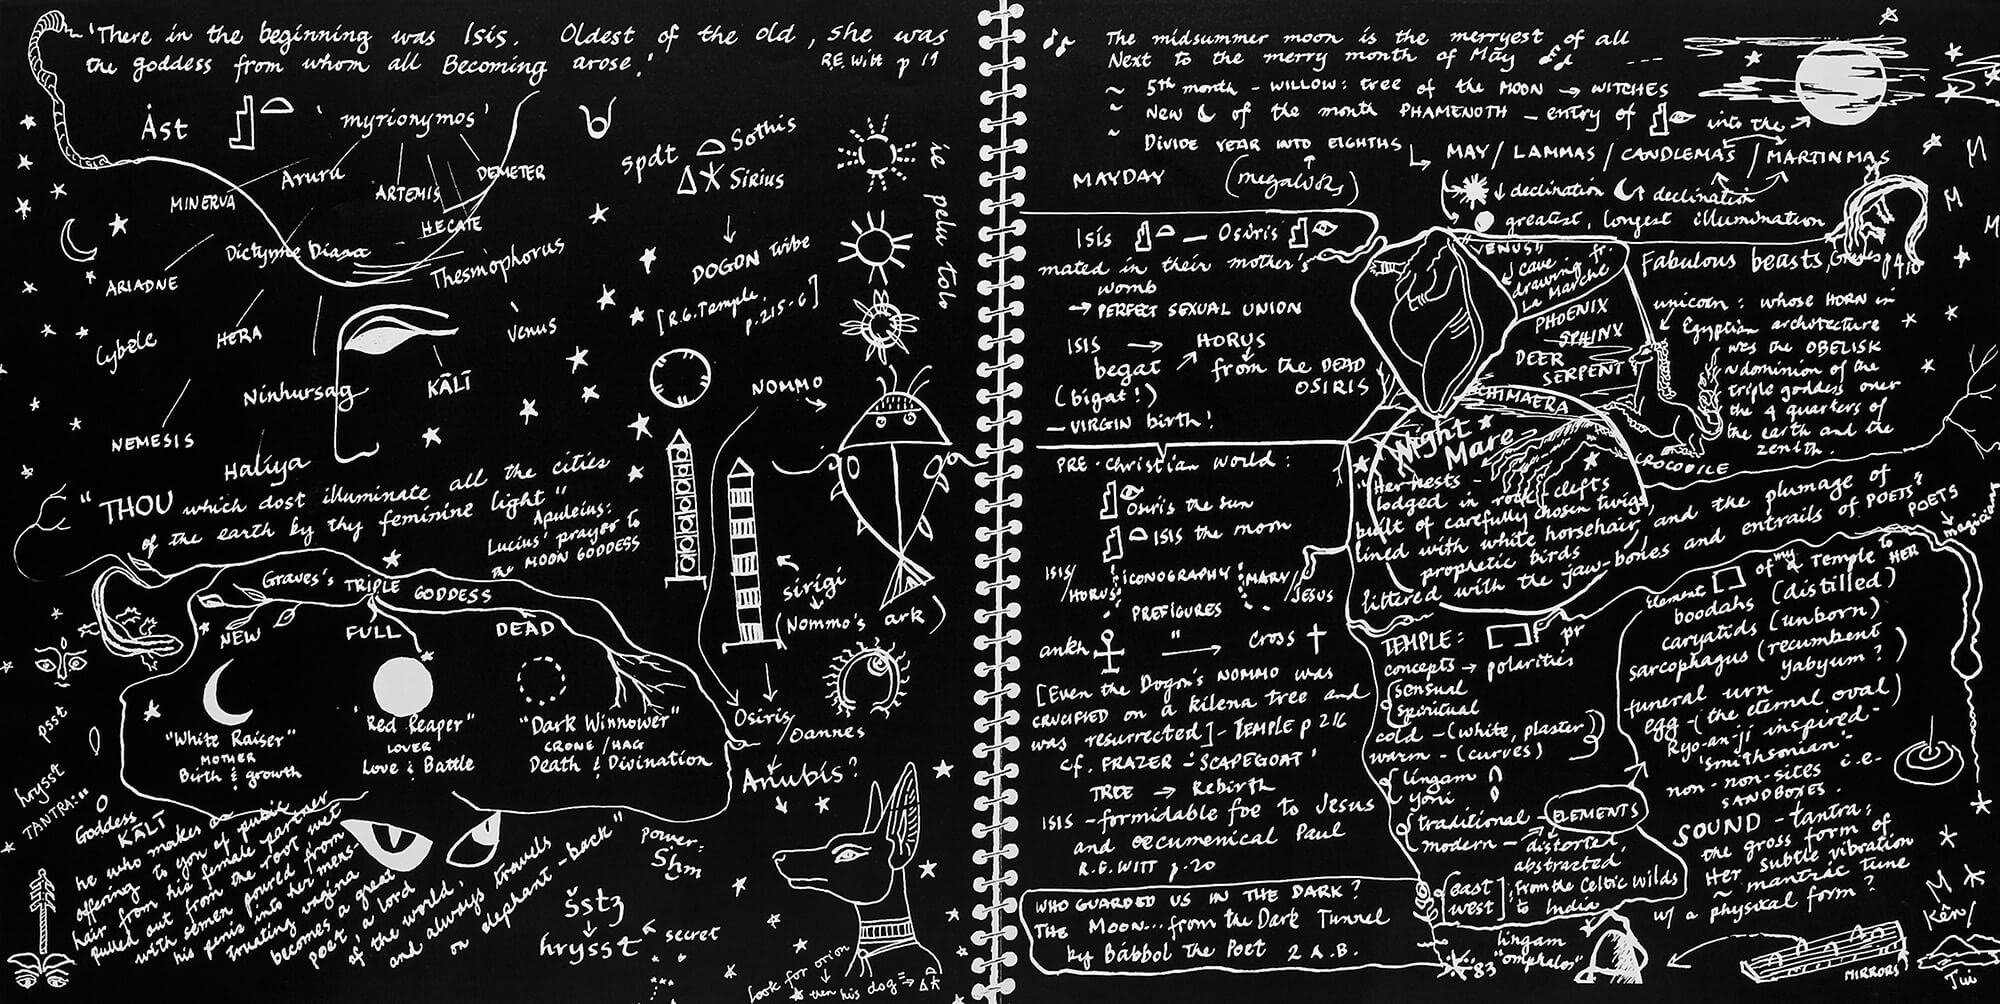 'There in the beginning was Isis. Oldest of the old, she was
the goddess from whom all Becoming arose.'
R.E. Witt p 19
Ȧst
'myrionymos'
MINERVA
Arura
ARTEMIS
DEMETER
HECATE
Dictynne Diana
Thesmophorus
ARIADNE
Cybele
HERA
Venus
Ninhursag
KĀLĪ
NEMESIS
Haliya
"THOU which dost illuminate all the cities
of the earth by thy feminine light"
Apuleius:
Lucius' prayer to
the MOON GODDESS
Graves's TRIPLE GODDESS
NEW
FULL
DEAD
"White Raiser"
MOTHER
Birth & growth
"Red Reaper"
LOVER
Love & Battle
"Dark Winnower"
CRONE / HAG
Death & Divination
psst
hrysst
TANTRA:
Goddess
KĀLĪ
he who makes a
offering to you of pubic
hair from his female partner
pulled out from the root wet
with semen poured from
his penis into her mens
truating vagina
becomes a great
poet, a lord
of the world,
and always travels
on elephant-back"
spdt
Sothis
Sirius
DOGON tribe
[R.G. Temple,
p. 215-6]
i.e pelu tolo
NOMMO
sirigi
(Nommo's ark)
Osiris/
Oannes
Anubis?
power:
Sḥm
šstȝ
hrysst
secret
look for orion
then his dog
The midsummer moon is the merryest of all
Next to the merry month of May
~ 5th month - WILLOW: tree of the MOON → WITCHES
~ New of the month PHAMENOTH - entry of into the
~ DIVIDE YEAR INTO EIGHTHS
MAY / LAMMAS / CANDLEMAS / MARTINMAS
MAYDAY
declination declination
greatest, longest illumination
Isis — Osiris
mated in their mother's
womb
→ PERFECT SEXUAL UNION
ISIS → HORUS
begat from the DEAD
(bigat!) OSIRIS
- VIRGIN birth!
"VENUS"
cave
drawing fr.
La Marche
Fabulous beasts, Graves p 410
PHOENIX
SPHINX
DEER
SERPENT
CHIMAERA
CROCODILE
unicorn: whose HORN in
Egyptian architecture
was the OBELISK
~ dominion of the
triple goddess over
the 4 quarters of
the earth and the
zenith.
Night
Mare
"Her nests -
lodged in rock-clefts
built of carefully chosen twigs
lined with white horsehair, and the plumage of
prophetic birds
littered with the jaw-bones and entrails of POETS"
POETS
magicians
PRE-Christian world:
Osiris the sun
ISIS the moon
ISIS/
HORUS
ICONOGRAPHY
PREFIGURES
MARY/
JESUS
ankh " → Cross
[Even the Dogon's NOMMO was
CRUCIFIED on a kilena tree and
was resurrected] - TEMPLE p 216
cf. FRAZER - 'SCAPEGOAT'
TREE → Rebirth
ISIS - formidable foe to Jesus
and oecumenical Paul
R.E. WITT p. 20
WHO GUARDED US IN THE DARK?
THE Moon... from the Dark Tunnel
by Babbol The Poet 2 A.B.
TEMPLE: pr
concepts → polarities
sensual
spiritual
cold - (white, plaster)
warm - (curves)
lingam
yoni
traditional - ELEMENTS
modern - distorted,
abstracted
[east
west]; from the Celtic wilds
to India
'83
lingam
"omphalos"
Element of my a Temple to HER
boodahs (distilled)
caryatids (unborn)
sarcophagus (recumbent
yabyum?)
funeral urn
egg - (the eternal oval)
Ryo-an-ji inspired -
'smithsonian' -
non-sites i.e-
SANDBOXES.
SOUND - tantra;
the gross form of
Her subtle vibration
~ mantric tune
w/ a physical form?
MIRRORS
M
Kên/
Tui